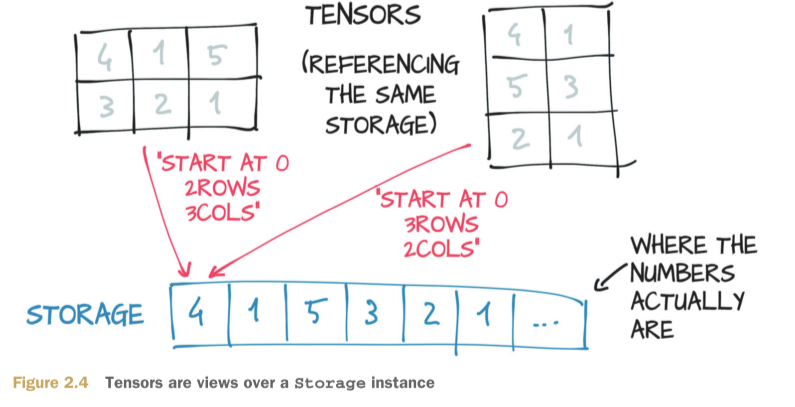 TENSORS
(REFERENCING
THE SAME
STORAGE)
4 1 5
3 2 1
4 1
5 3
2 1
"START AT 0
2ROWS
3COLS"
"START AT 0
3ROWS
2COLS"
WHERE THE
NUMBERS
ACTUALLY
ARE
STORAGE 4 1 5 3 2 1 ...
Figure 2.4 Tensors are views over a Storage instance